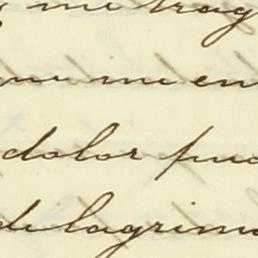 me trag
que me en
dolor pud
de lagrima